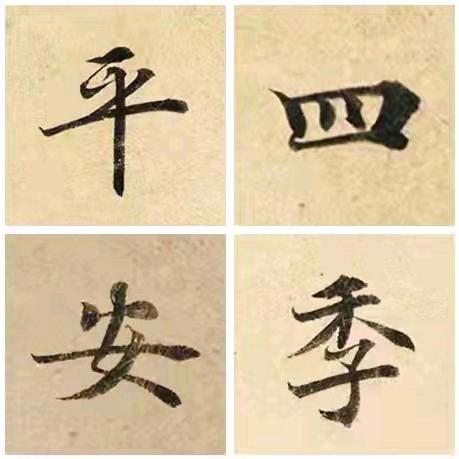 四季
平安